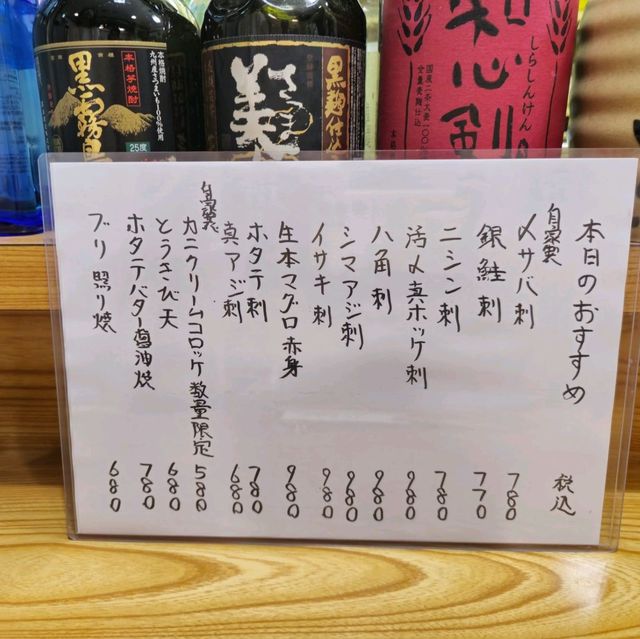 本格焼酎
九州産さつまいも100%使用
本格芋焼酎
黒霧島
25度
さつま
美
黒麹仕込
知心剣
しらしんけん
国産二条大麦100%
全量麦麹仕込
本日のおすすめ 税込
自家製 〆サバ刺 780
銀鮭刺 770
ニシン刺 780
活〆真ホッケ刺 980
八角刺 980
シマアジ刺 980
イサキ刺 980
生本マグロ赤身 980
ホタテ刺 780
真アジ刺 680
自家製 カニクリームコロッケ 数量限定 580
とうきび天 680
ホタテバター醤油焼 780
ブリ照り焼 680